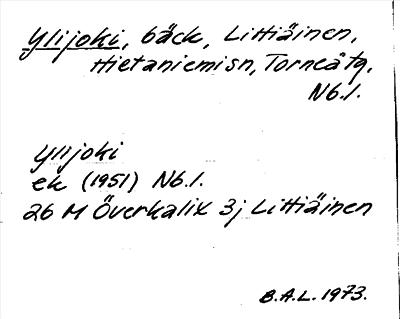 Ylijoki, bäck, Littiäinen,
Hietaniemisn, Torneå tg.
Nb.l.
Ylijoki
ek (1951) Nb.l.
26 M Överkalix 3j Littiäinen
B.A.L. 1973.